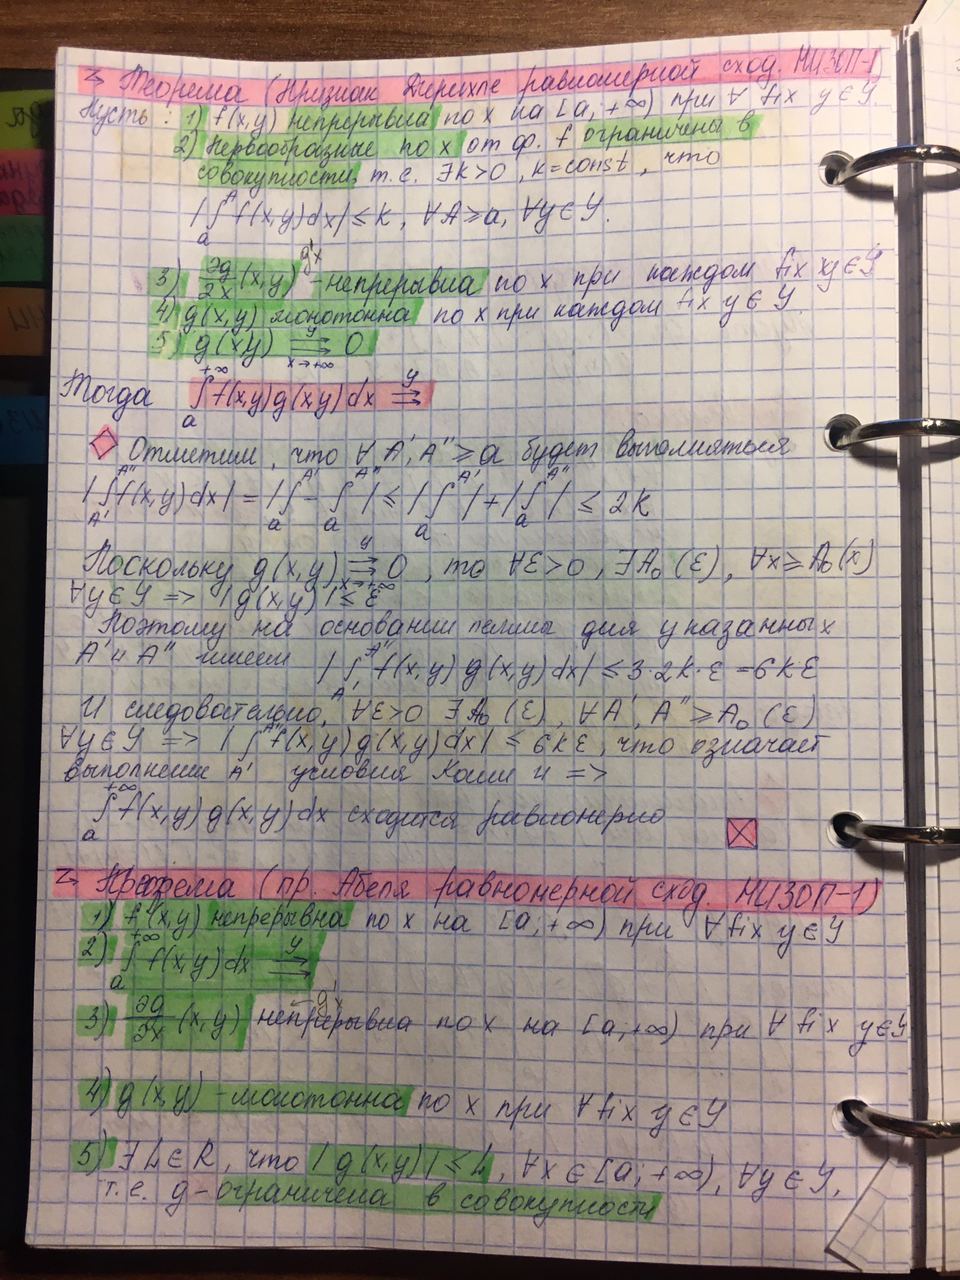 Теорема (Признак Дирихле равномерной сход. НИЗОП-1)
Пусть: 1) f(x,y) непрерывна по x на [a; +∞) при ∀ fix y∈Y.
2) Первообразные по x от ф. f ограничены в
совокупности, т.е. ∃K>0, K=const, что
|∫ₐᴬ f(x,y)dx| ≤ K, ∀A≥a, ∀y∈Y.
g'x
3) ∂g/∂x (x,y) - непрерывна по x при каждом fix y∈Y
4) g(x,y) монотонна по x при каждом fix y∈Y.
5) g(x,y) ⇉^Y_{x→+∞} 0
Тогда ∫ₐ^{+∞} f(x,y)g(x,y)dx ⇉^Y
Отметим, что ∀ A', A'' ≥ a будет выполняться
|∫_{A'}^{A''} f(x,y)dx| = |∫ₐ^{A'} - ∫ₐ^{A''}| ≤ |∫ₐ^{A'}| + |∫ₐ^{A''}| ≤ 2K
Поскольку g(x,y) ⇉^Y_{x→+∞} 0, то ∀ε>0, ∃A₀(ε), ∀x≥A₀(x)
∀y∈Y => |g(x,y)| ≤ ε
Поэтому на основании леммы для указанных
A' и A'' имеем |∫_{A'}^{A''} f(x,y) g(x,y)dx| ≤ 3·2K·ε = 6Kε
И следовательно, ∀ε>0 ∃A₀(ε), ∀A', A'' ≥ A₀(ε)
∀y∈Y => |∫_{A'}^{A''} f(x,y)g(x,y)dx| ≤ 6Kε, что означает
выполнение условия Коши и =>
∫ₐ^{+∞} f(x,y)g(x,y)dx сходится равномерно
(пр. Абеля равномерной сход. НИЗОП-1)
1) f(x,y) непрерывна по x на [a; +∞) при ∀ fix y∈Y
2) ∫ₐ^{+∞} f(x,y)dx ⇉^Y
g'x
3) ∂g/∂x (x,y) непрерывна по x на [a; +∞) при ∀ fix y∈Y
4) g(x,y) - монотонна по x при ∀ fix y∈Y
5) ∃L∈R, что |g(x,y)| ≤ L, ∀x∈[a; +∞), ∀y∈Y,
т.е. g - ограничена в совокупности